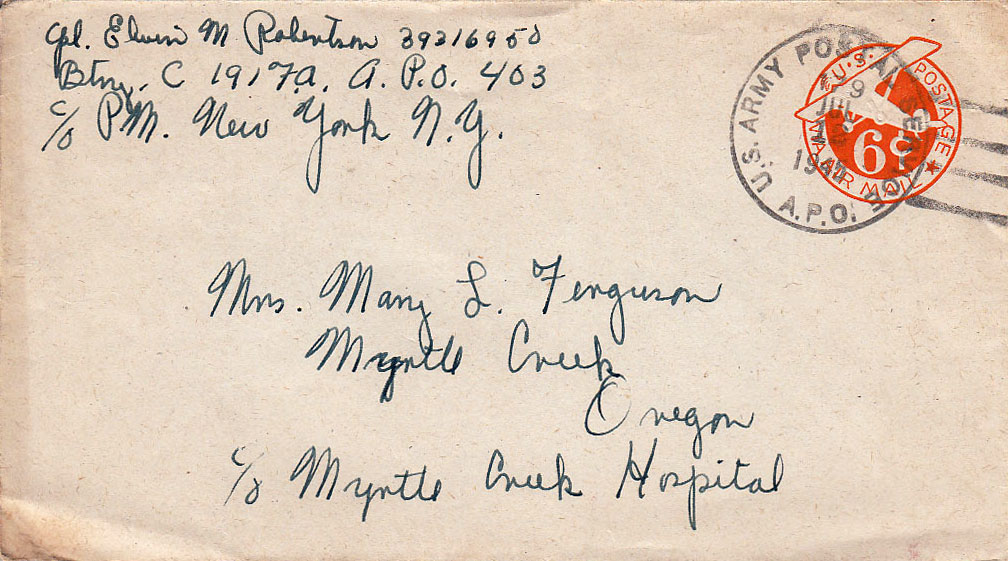 Cpl. Elwin M Robertson 39316950
Btry. C 191 F.A. A.P.O. 403
c/o P.M. New York N.Y.
U.S. ARMY POSTAL SERVICE
A.P.O.
JUL
194
U.S. POSTAGE
6¢
VIA AIR MAIL
Mrs. Mary L. Ferguson
Myrtle Creek
Oregon
c/o Myrtle Creek Hospital